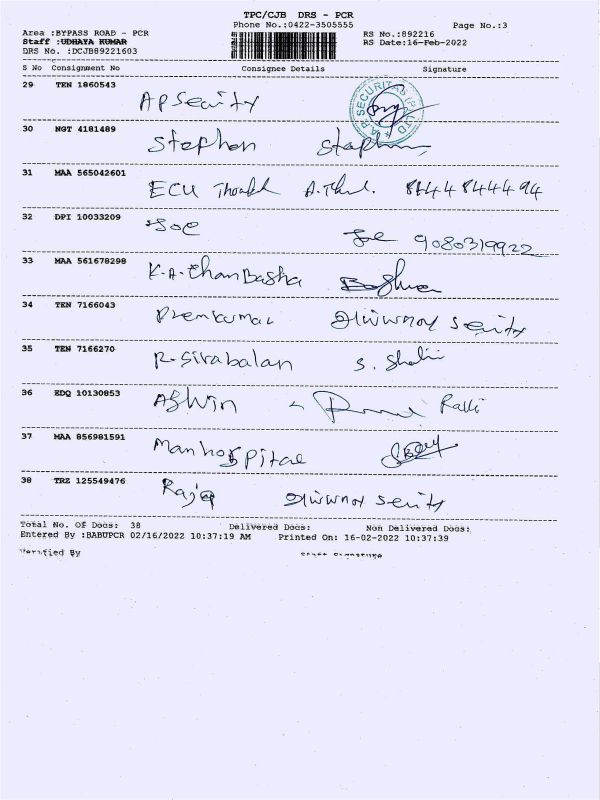 TPC/CJB DRS - PCR
Phone No.:0422-3505555
Page No.:3
Area :BYPASS ROAD - PCR
Staff :UDHAYA KUMAR
DRS No. :DCJB89221603
RS No.:892216
RS Date:16-Feb-2022
S No Consignment No Consignee Details Signature
29 TEN 1860543 AP Secuity
30 NGT 4181489 Stephen Stephen
31 MAA 565042601 ECU 8144844494
32 DPI 10033209 Joe Joe 9080319922
33 MAA 561678298 K.A. Chan Basha
34 TEN 7166043 Premkumar
35 TEN 7166270 R. Sivabalan
36 EDQ 10130853 Ashwin
37 MAA 856981591 Manhospital
38 TRZ 125549476 Raja
Total No. Of Docs: 38 Delivered Docs: Non Delivered Docs:
Entered By :BABUPCR 02/16/2022 10:37:19 AM Printed On: 16-02-2022 10:37:39
Verified By Staff Signature